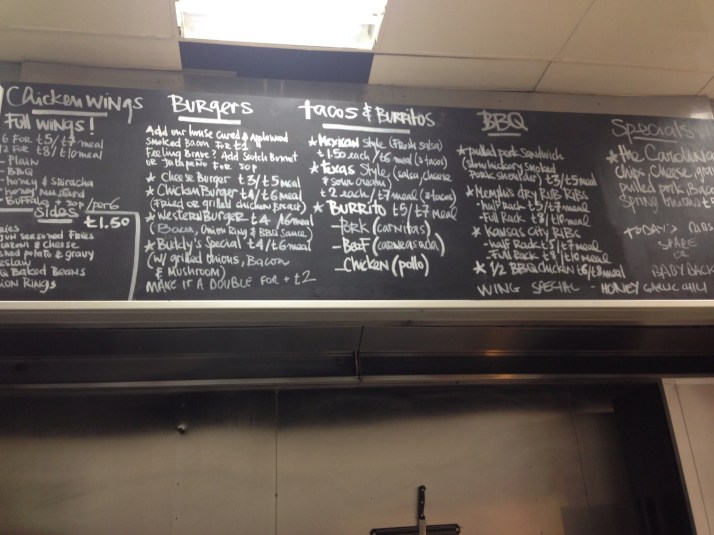 Chicken Wings
Full Wings!
6 for £5/£7 meal
12 for £8/£10 meal
- Plain
- BBQ
- honey & Sriracha
- honey mustard
- Buffalo
Sides
£1.50
Fries
seasoned Fries
& cheese
potato & gravy
Baked Beans
Rings
Burgers
Add our house cured & Applewood
smoked Bacon for £1
Feeling Brave? Add Scotch Bonnet
or Jalapeño for 30p
★ Cheese Burger £3/£5 meal
★ Chicken Burger £4/£6 meal
(Fried or grilled chicken Breast)
★ Western Burger £4/£6 meal
(Bacon, Onion Ring & BBQ Sauce)
★ Buddy's Special £4/£6 meal
(w/ grilled onions, Bacon
& Mushroom)
Make it a double for + £2
tacos & Burritos
★ Mexican Style (Fresh salsa)
£1.50 each/£6 meal (3 tacos)
★ Texas Style (salsa, cheese
& sour cream)
£2 each/£7 meal (3 tacos)
★ Burrito £5/£7 meal
- Pork (carnitas)
- Beef (carneasada)
- Chicken (pollo)
BBQ
★ pulled pork sandwich
(slow hickory smoked
Pork shoulder) £3/£5 meal
★ Memphis dry Rub Ribs
- half rack £5/£7 meal
- Full Rack £8/£10 meal
★ Kansas City Ribs
- half Rack £5/£7 meal
- Full Rack £8/£10 meal
★ 1/2 BBQ chicken £6/£8 meal
Wing Special - Honey Garlic Chili
Specials
★ the Carolina
chips, cheese,
pulled pork, Bacon
Spring
Today's
Spare
or
Baby Back